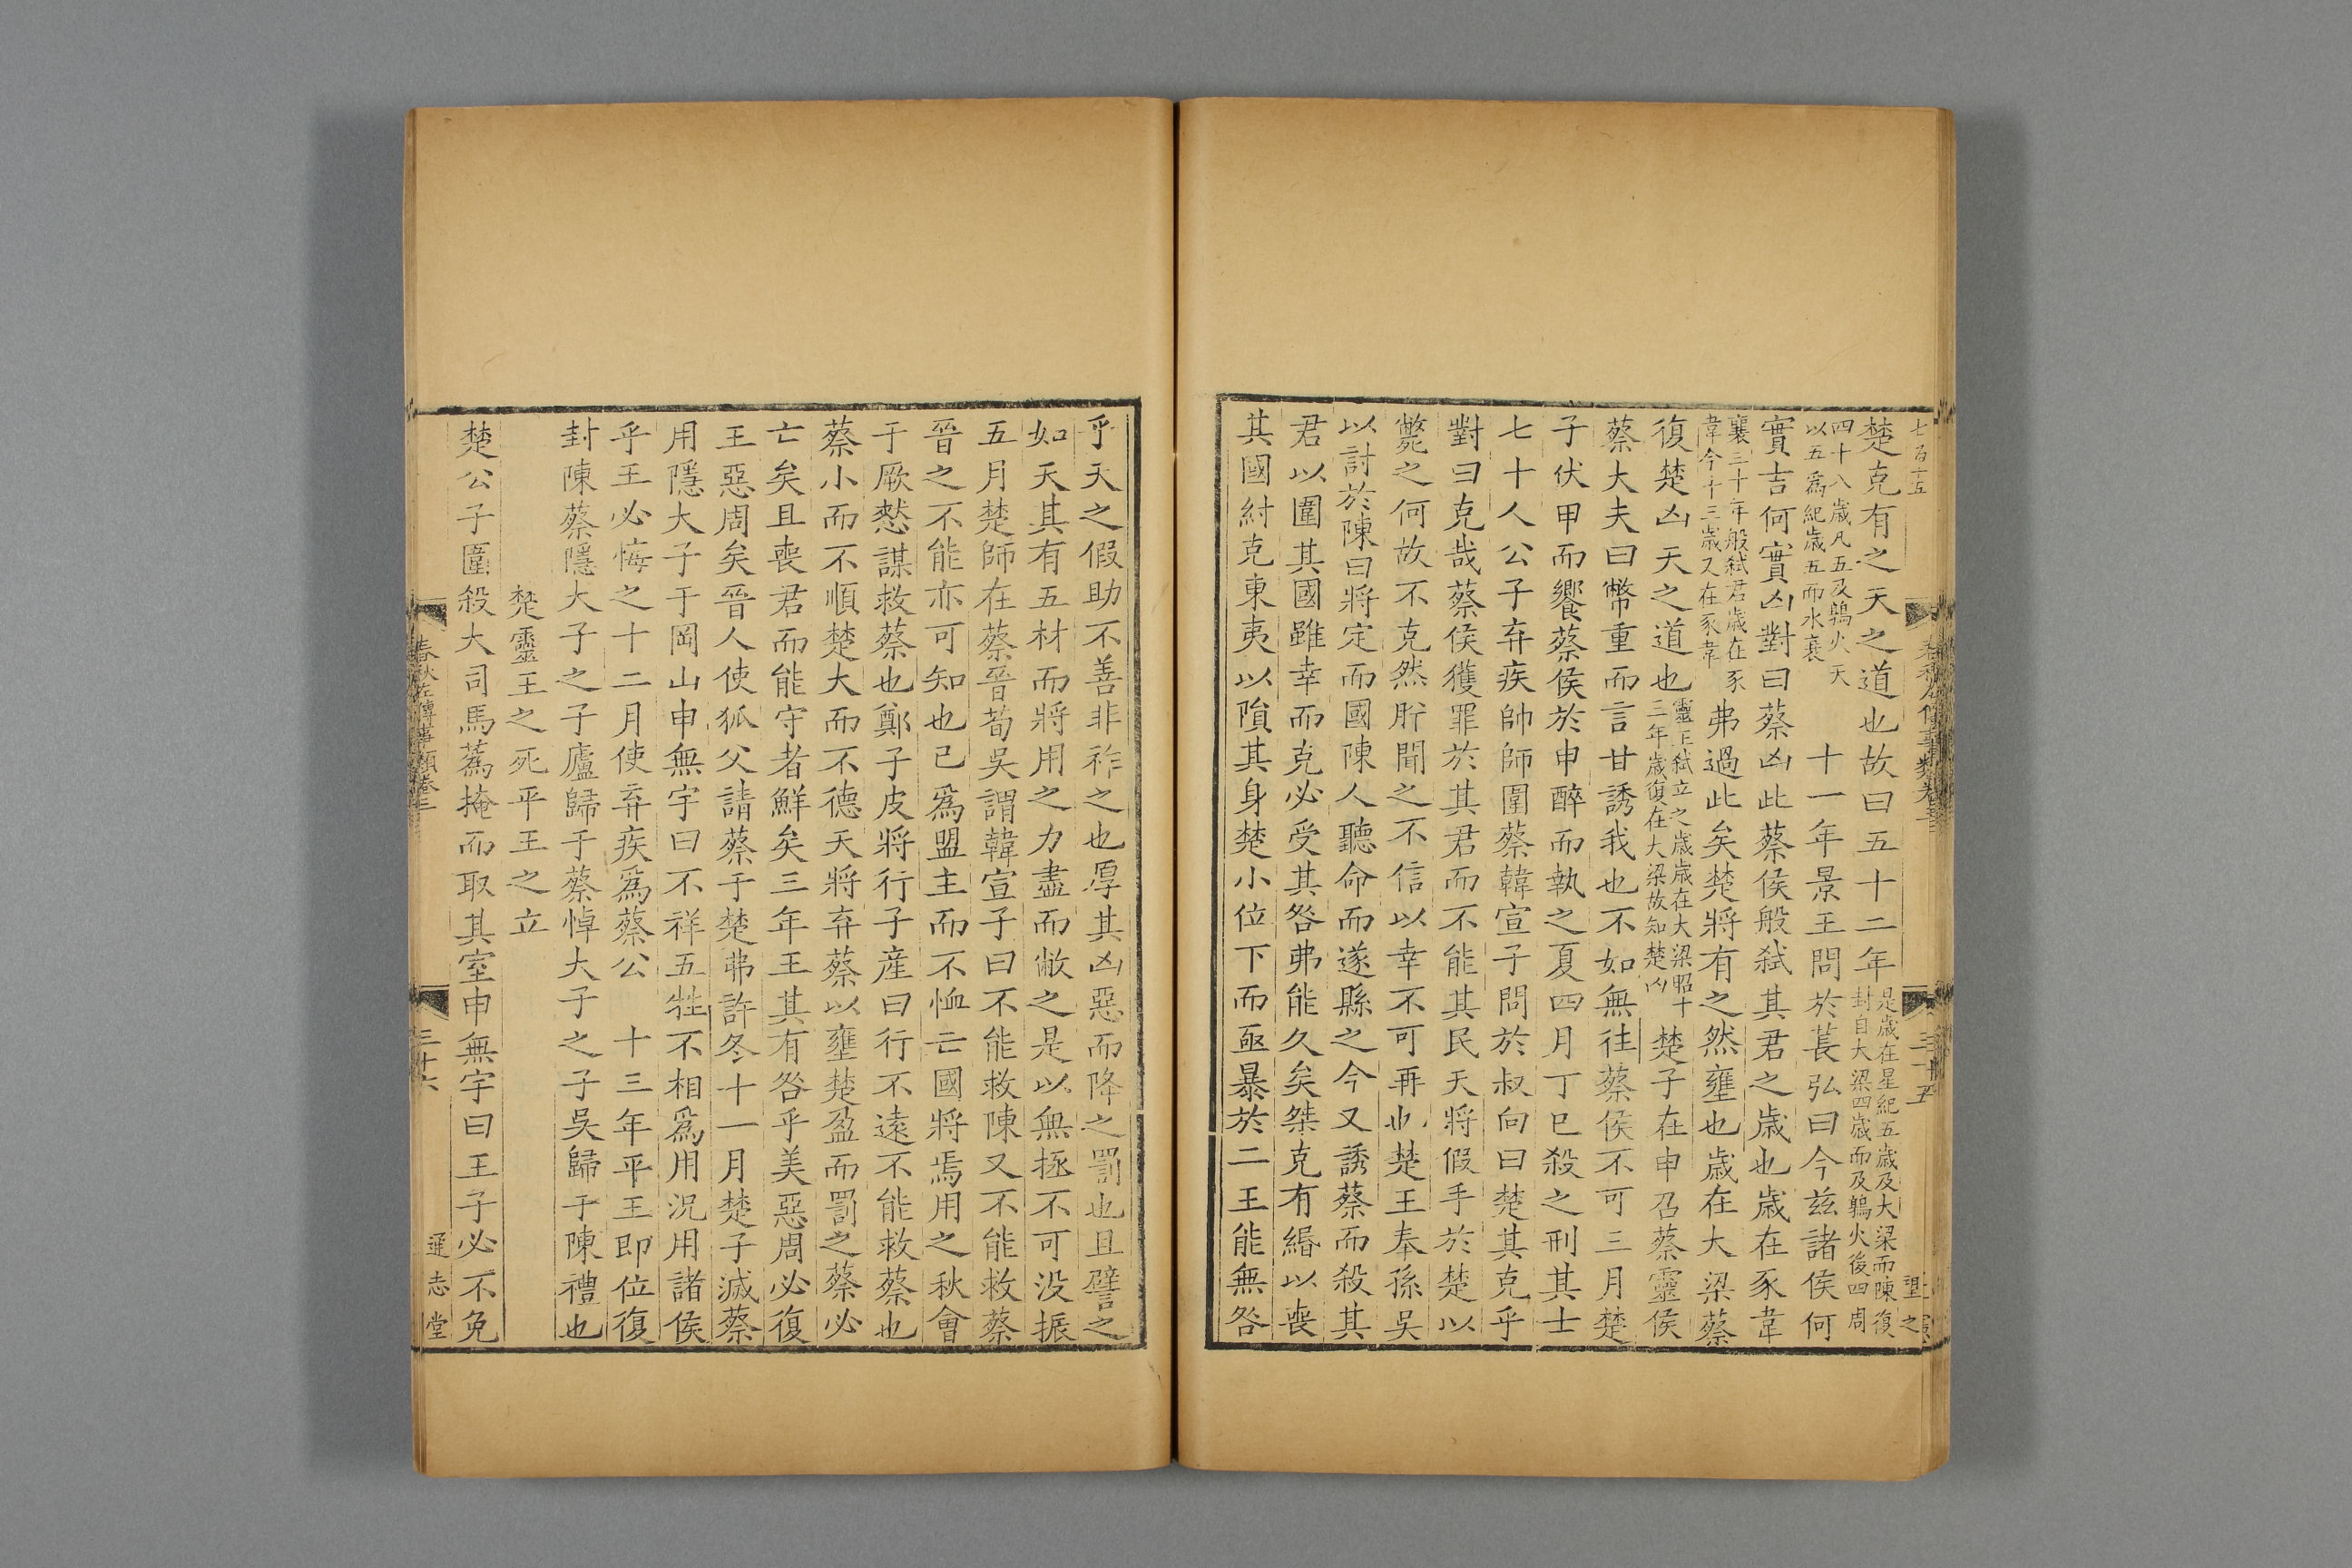 七百十五
楚克有之天之道也故曰五十二年是歲在星紀五歲及大梁而陳復封自大梁四歲而及鶉火後四周
四十八歲凡五及鶉火天以五爲紀歲五而水衰　十一年景王問於萇弘曰今玆諸侯何
實吉何實凶對曰蔡凶此蔡侯般弑其君之歲也歲在豕韋
襄三十年般弑君歲在豕韋今十三歲又在豕韋弗過此矣楚將有之然壅也歲在大梁蔡
復楚凶天之道也靈王弑立之歲歲在大梁昭十三年歲復在大梁故知楚凶楚子在申召蔡靈侯
蔡大夫曰幣重而言甘誘我也不如無往蔡侯不可三月楚
子伏甲而饗蔡侯於申醉而執之夏四月丁巳殺之刑其士
七十人公子弃疾帥師圍蔡韓宣子問於叔向曰楚其克乎
對曰克哉蔡侯獲罪於其君而不能其民天將假手於楚以
斃之何故不克然肸聞之不信以幸不可再也楚王奉孫吳
以討於陳曰將定而國陳人聽命而遂縣之今又誘蔡而殺其
君以圍其國雖幸而克必受其咎弗能久矣桀克有緡以喪
其國紂克東夷以隕其身楚小位下而亟暴於二王能無咎
乎天之假助不善非祚之也厚其凶惡而降之罰也且譬之
如天其有五材而將用之力盡而敝之是以無拯不可没振
五月楚師在蔡晉荀吳謂韓宣子曰不能救陳又不能救蔡
晉之不能亦可知也已爲盟主而不恤亡國將焉用之秋會
于厥憖謀救蔡也鄭子皮將行子産曰行不遠不能救蔡也
蔡小而不順楚大而不德天將弃蔡以壅楚盈而罰之蔡必
亡矣且喪君而能守者鮮矣三年王其有咎乎美惡周必復
王惡周矣晉人使狐父請蔡于楚弗許冬十一月楚子滅蔡
用隱大子于岡山申無宇曰不祥五牲不相爲用況用諸侯
乎王必悔之十二月使弃疾爲蔡公　十三年平王即位復
封陳蔡隱大子之子廬歸于蔡悼大子之子吳歸于陳禮也
楚靈王之死平王之立
楚公子圍殺大司馬蒍掩而取其室申無宇曰王子必不免
春秋左傳事類卷三
三十六
通志堂